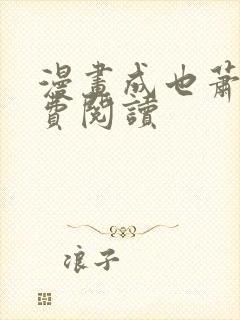 漫畫成也蕭
費閱讀
浪子